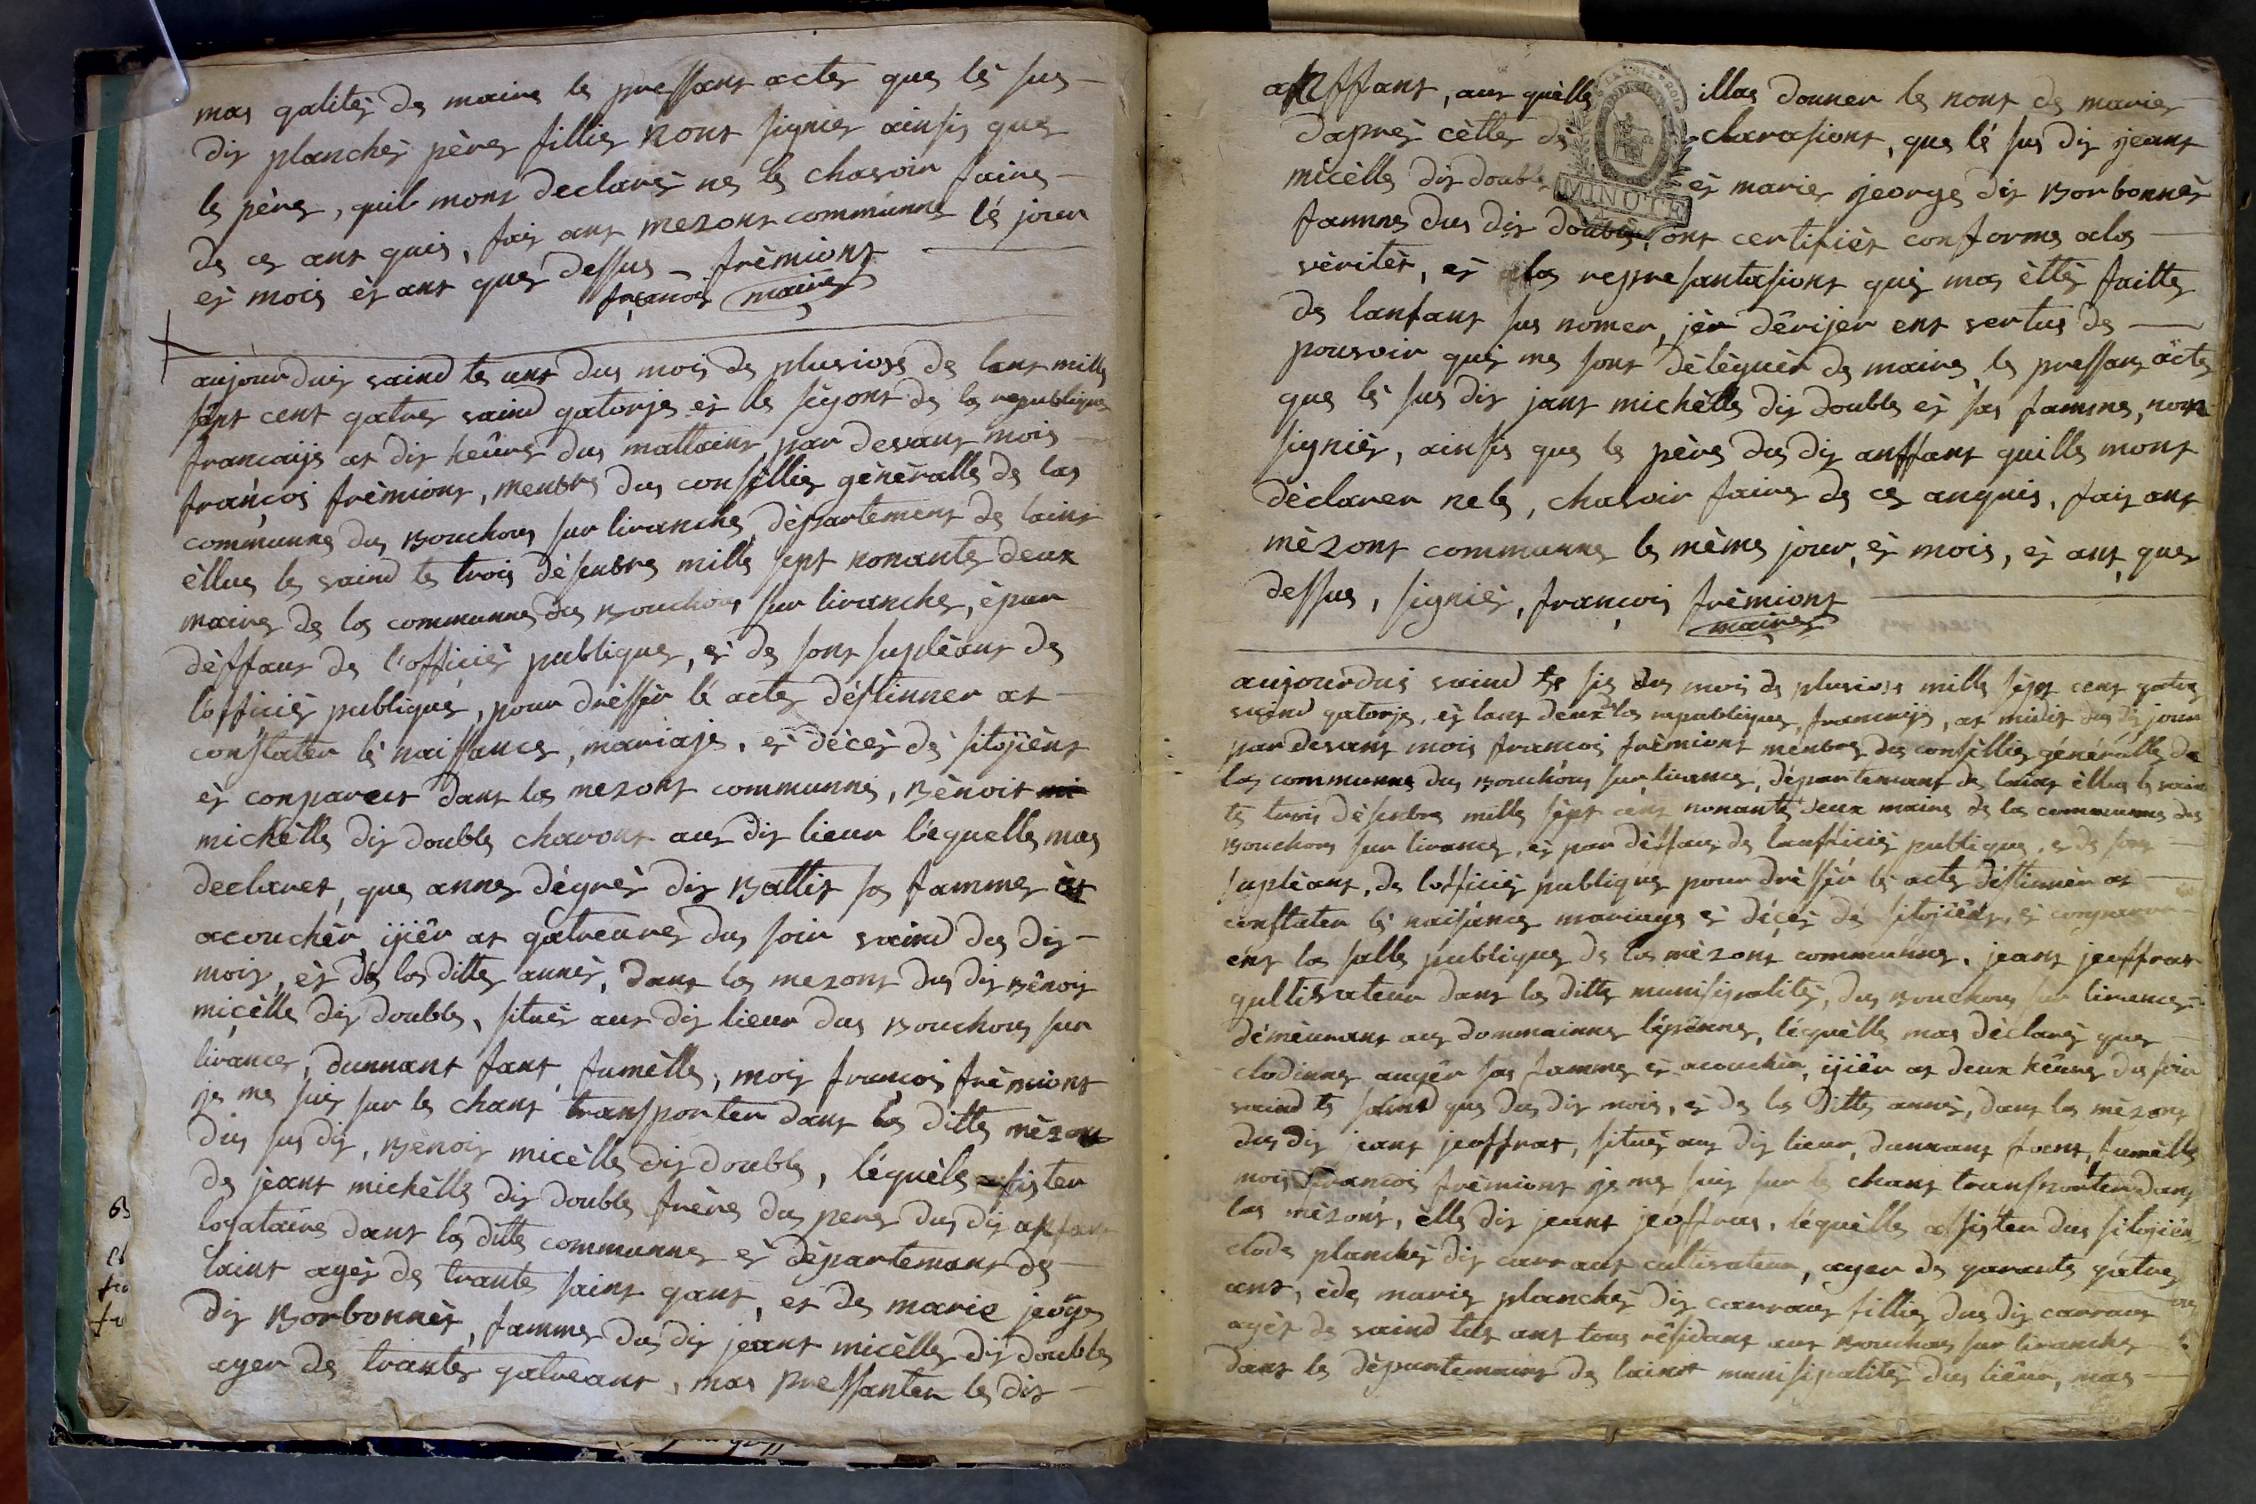 mas qalitéj de maire le pressant acte que lé sus
dij planchéj père fillie nont signiér ainsij que
le père, quil mont declaréj ne le chavoir faire
de ce ant quis, faij ant mezont communne lé jour
ej mois éj ant que dessus frémiont
françois maire
aujourduij vaind te unt dus mois de plusiose de lant mille
sept cent qatre vaind qatorje ej le segont de la republique
francaije at dij heûre dus mattaint par devant mois
françois frémiont, menbre dus consillie générálle de las
communne dus Bouchous sur liranche, département de laint
éllue le vaind te trois désenbre mille sept nonante deux
maire de las communne des Bouchous sur liranche, épar
déffaut de l'officiér publique, ej de sont supléant de
lofficiér publique, pour drésser lé acte déstinner at
constater lé naissance, mariaje, ej décéj dé sitojiént
ej conpareit dant las mezont communne, Bénoit mi
michélle dij double charont aus dij lieur léquelle mas
declarer, que anne dégréj dij Battit sa famme ét
acouchér ijiér at qatreure dus soir vaind dus dij
mois, ej de las ditte annéj, dant las mezont dus dij Bénoij
micélle dij double, situéj aux dij lieur dus Bouchous sur
lirance, dunnant fant fumélle, moij francois frémiont
je me suij sur le chant transporter dant las ditte mézont
dus sus dij, Bénoij micélle dij double, léquéle asister
de jeant michélle dij double frére dus pere dus dij anfant
locataire dant las ditte communne ej département de
laint agéj de trante saint qant, et de marie jeorje
dij Borbonnér, famme dus dij jeant micélle dij double
ager de trante qatreant, mas pressanter le dij
anffant, aux quélle illas donner le nont de marie
daprés cétte déclarasiont, que lé sus dij jeant
micélle dij double ej marie jeorge dij Borbonnér
famme dus dij double, ont certifiér conforme alas
véritér, ej alas represantasiont quéj mas étté faitte
de lanfant sus nomer, jér dérijer ent vertus de
pouvoir quéj me sont déléguér de maire, le pressant acte
que lé sus dij jant michélle dij double ej sas famme, nont
signiér, ainsis que le pére dus dij anffant quille mont
déclarer nele, chavoir faire de ce anquis, faij ant
mézont communne le méme jour, ej mois, ej ant, que
dessus, signiér, françois frémiont
maire
aujourduis vaind te sis dus mois de plusiose mille sépt cent qatre
vaind qatorje, ej lant deux de las republique, francaije, at midij dus dij jour
par devant mois francois frémiont menbre dus consillie générálle de
las communne dus Bouchous sur lirance, département de laint éllue le vaint
te trois désenbre mille sépt cent nonante deux maire de las communne dus
Bouchous sur lirance, ej par déffaut de laufficiér publique, e de sont
supléant, de lofficiér publique pour drésser lé acte déstinnér at
constater lé naisance mariage ej décéj dé sitojiént, ej conparu
ent las salle publique de las mézont communne, jeant jeoffrat
qultivateur dant las ditte munisipalitéj, dus Bouchous sur lirance
démeurant aus dommainne lépinne, léquélle mas déclaréj que
clodinne augér sas famme ej acouchér, ijiér at deux heûre dus soir
vaind te saint que dus dij mois, ej de las ditte annéj, dant las mézont
dus dij jeant jeoffrat, situéj aux dij lieur, dunnant fant, fumélle
mois francois frémiont je me suij sur le chant transporter dant
las mézont, élle dij jeant jeoffras, léquélle assister dus sitojiént
clode planchéj dij carraut cultivateur, ager de qarante qatre
ant, éde marie planchéj dij carraut fillie dus dij carraut
agér de vaind ant tous résidant aux Bouchous sur liranche
dant le département de lainst munisipalitéj dus lieur, mas
MINUTE